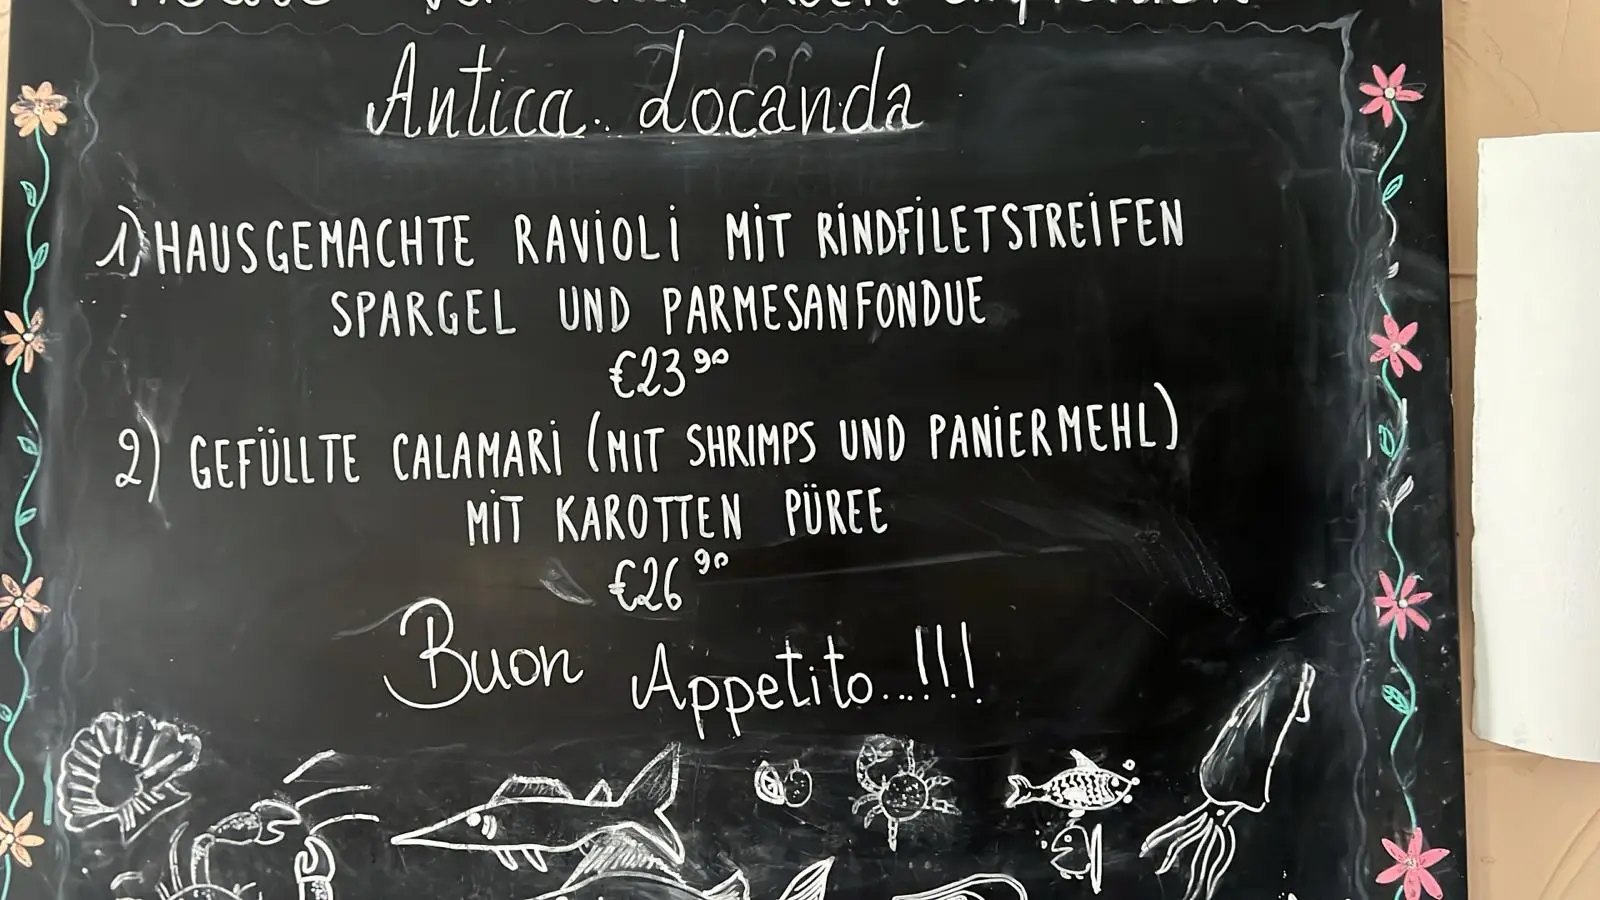 Antica Locanda
1) HAUSGEMACHTE RAVIOLI MIT RINDFILETSTREIFEN
SPARGEL UND PARMESANFONDUE
€23⁹⁰
2) GEFÜLLTE CALAMARI (MIT SHRIMPS UND PANIERMEHL)
MIT KAROTTEN PÜREE
€26⁹⁰
Buon Appetito...!!!